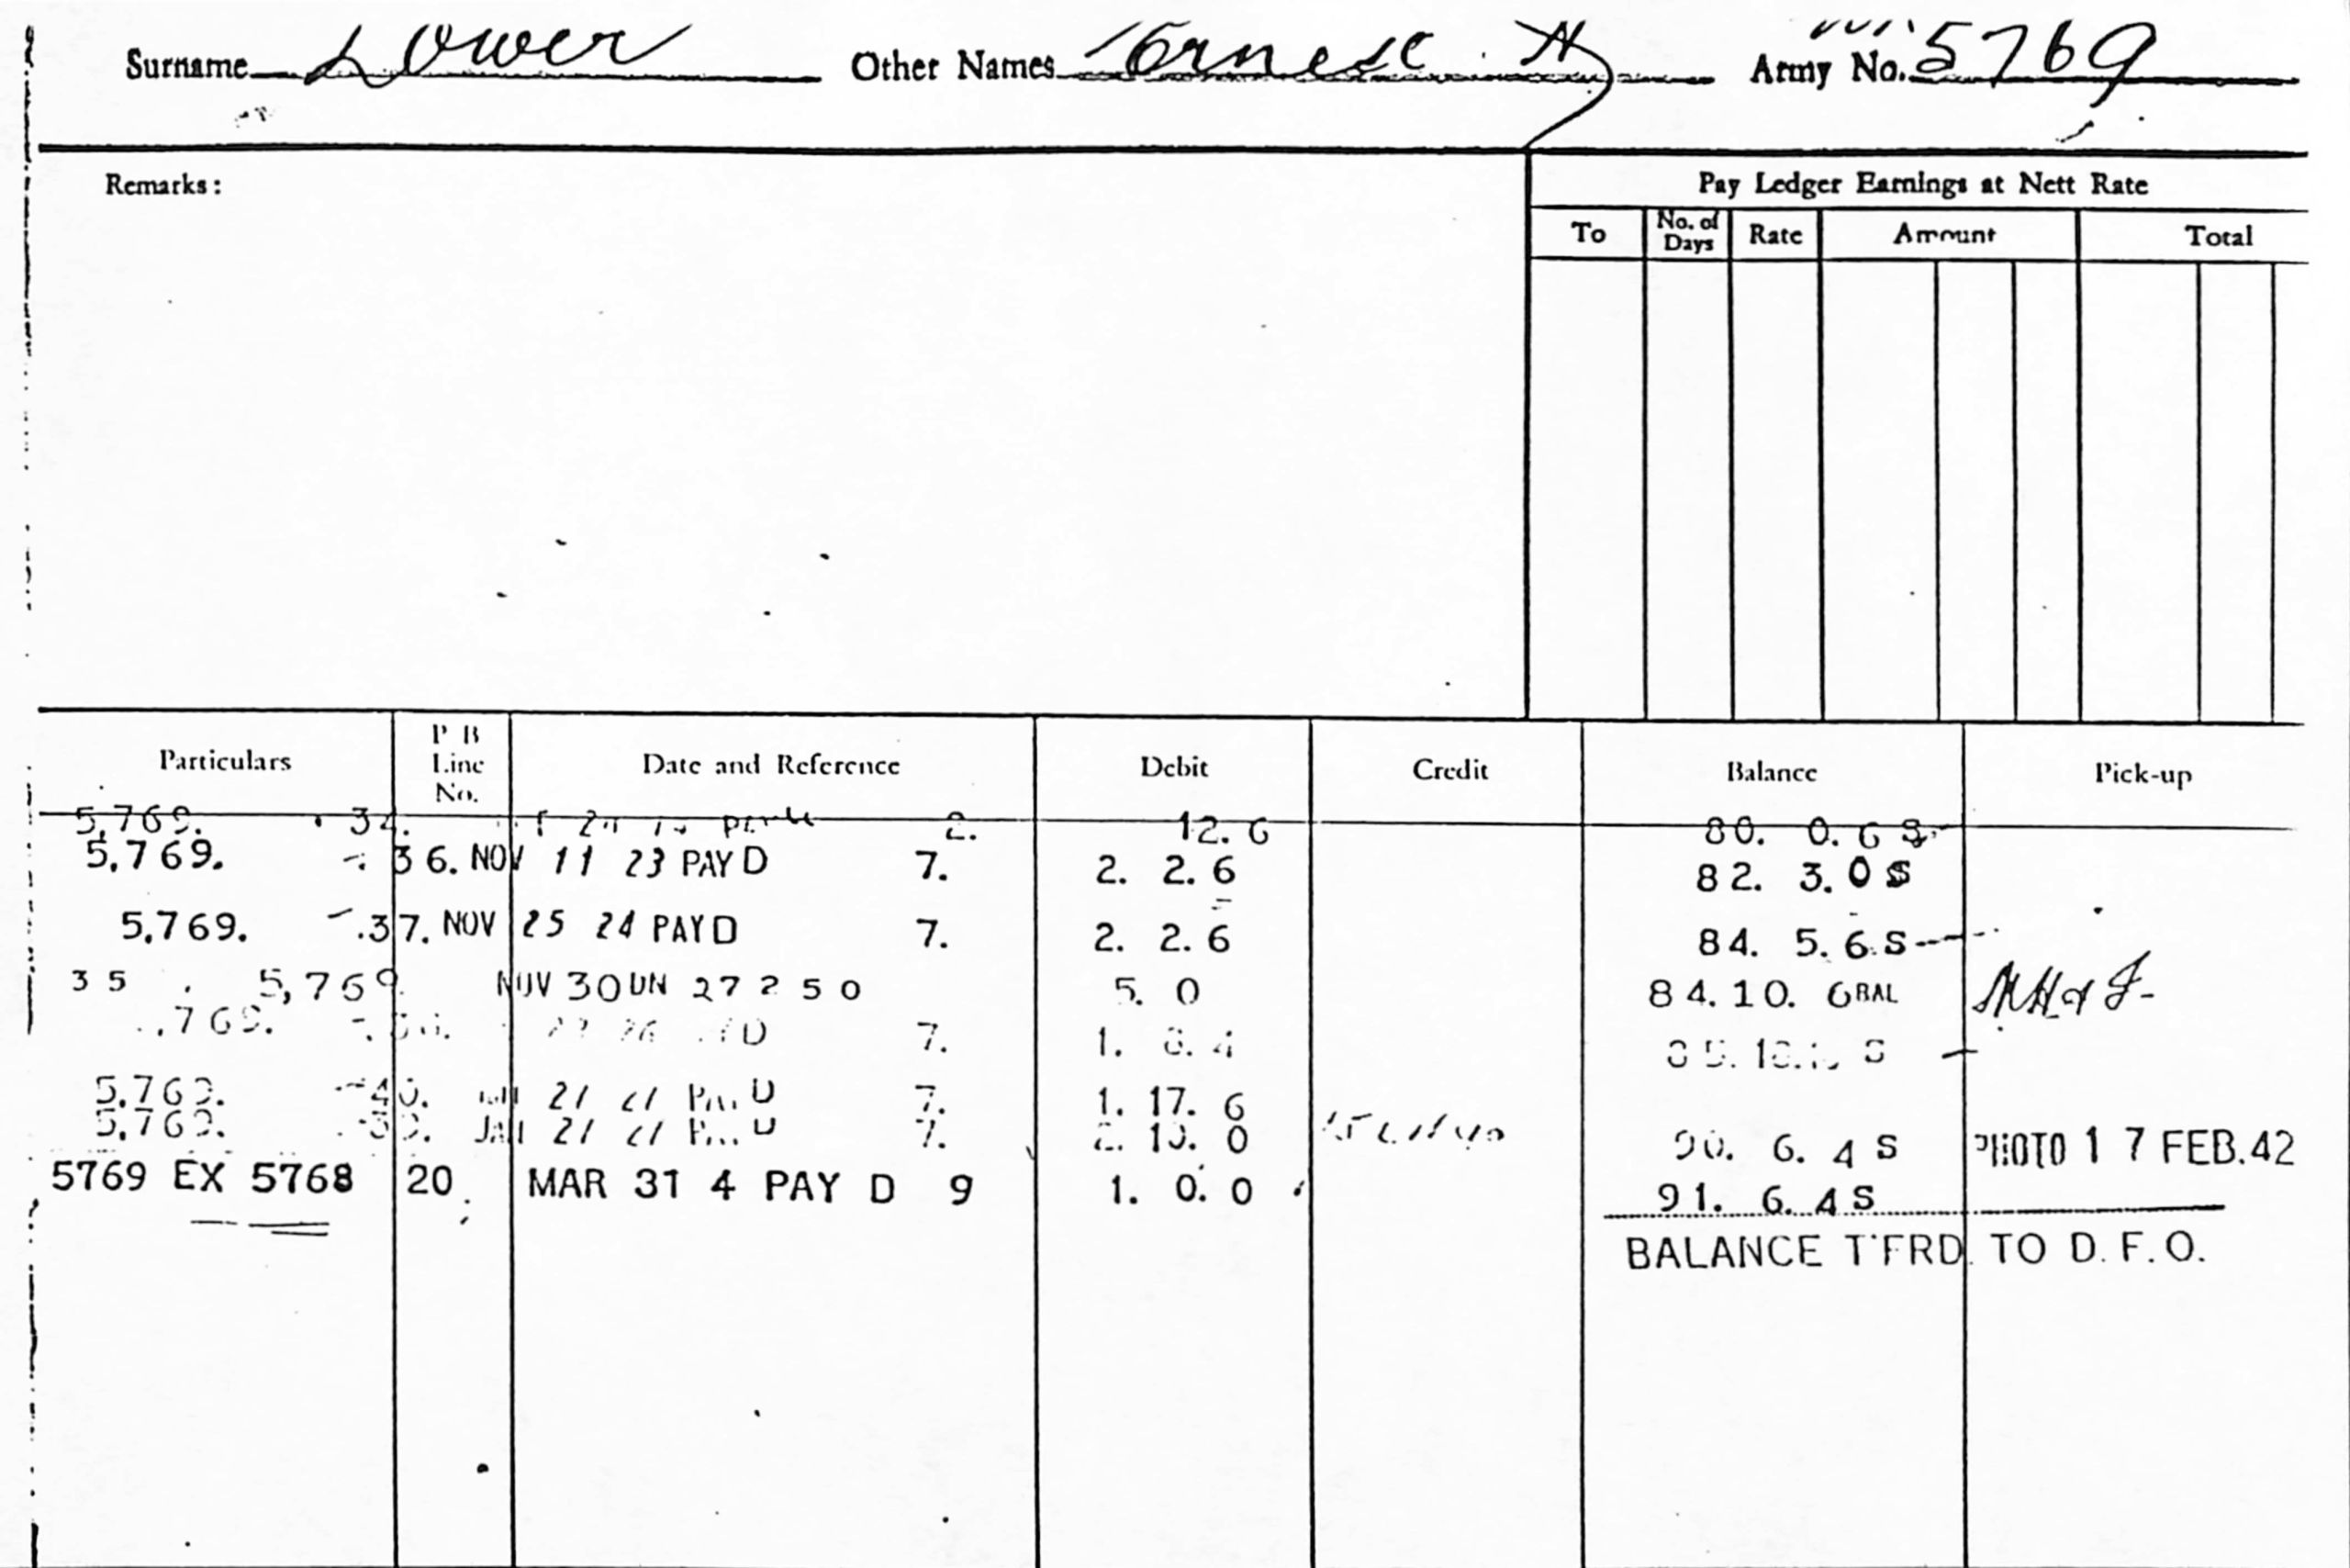 Surname Lower Other Names Ernest H Army No. 5769
Remarks:
Pay Ledger Earnings at Nett Rate
To No. of Days Rate Amount Total
Particulars P B Line No. Date and Reference Debit Credit Balance Pick-up
5,769. 2. 12. 6 80. 0. 6 S
5,769. - 36. NOV 11 23 PAY D 7. 2. 2. 6 82. 3. 0 S
5,769. - .37. NOV 25 24 PAY D 7. 2. 2. 6 84. 5. 6 S
35 5,769. NOV 30 UN 27 2 5 0 5. 0 84. 10. 6 BAL
,769. D 7. 1. 4 S
5,769. 21 D 7. 1. 17. 6
5,769. JAN 21 D 7. 10. 0 90. 6. 4 S PHOTO 17 FEB. 42
5769 EX 5768 20. MAR 31 4 PAY D 9 1. 0. 0 91. 6. 4 S
BALANCE T'FRD. TO D. F. O.